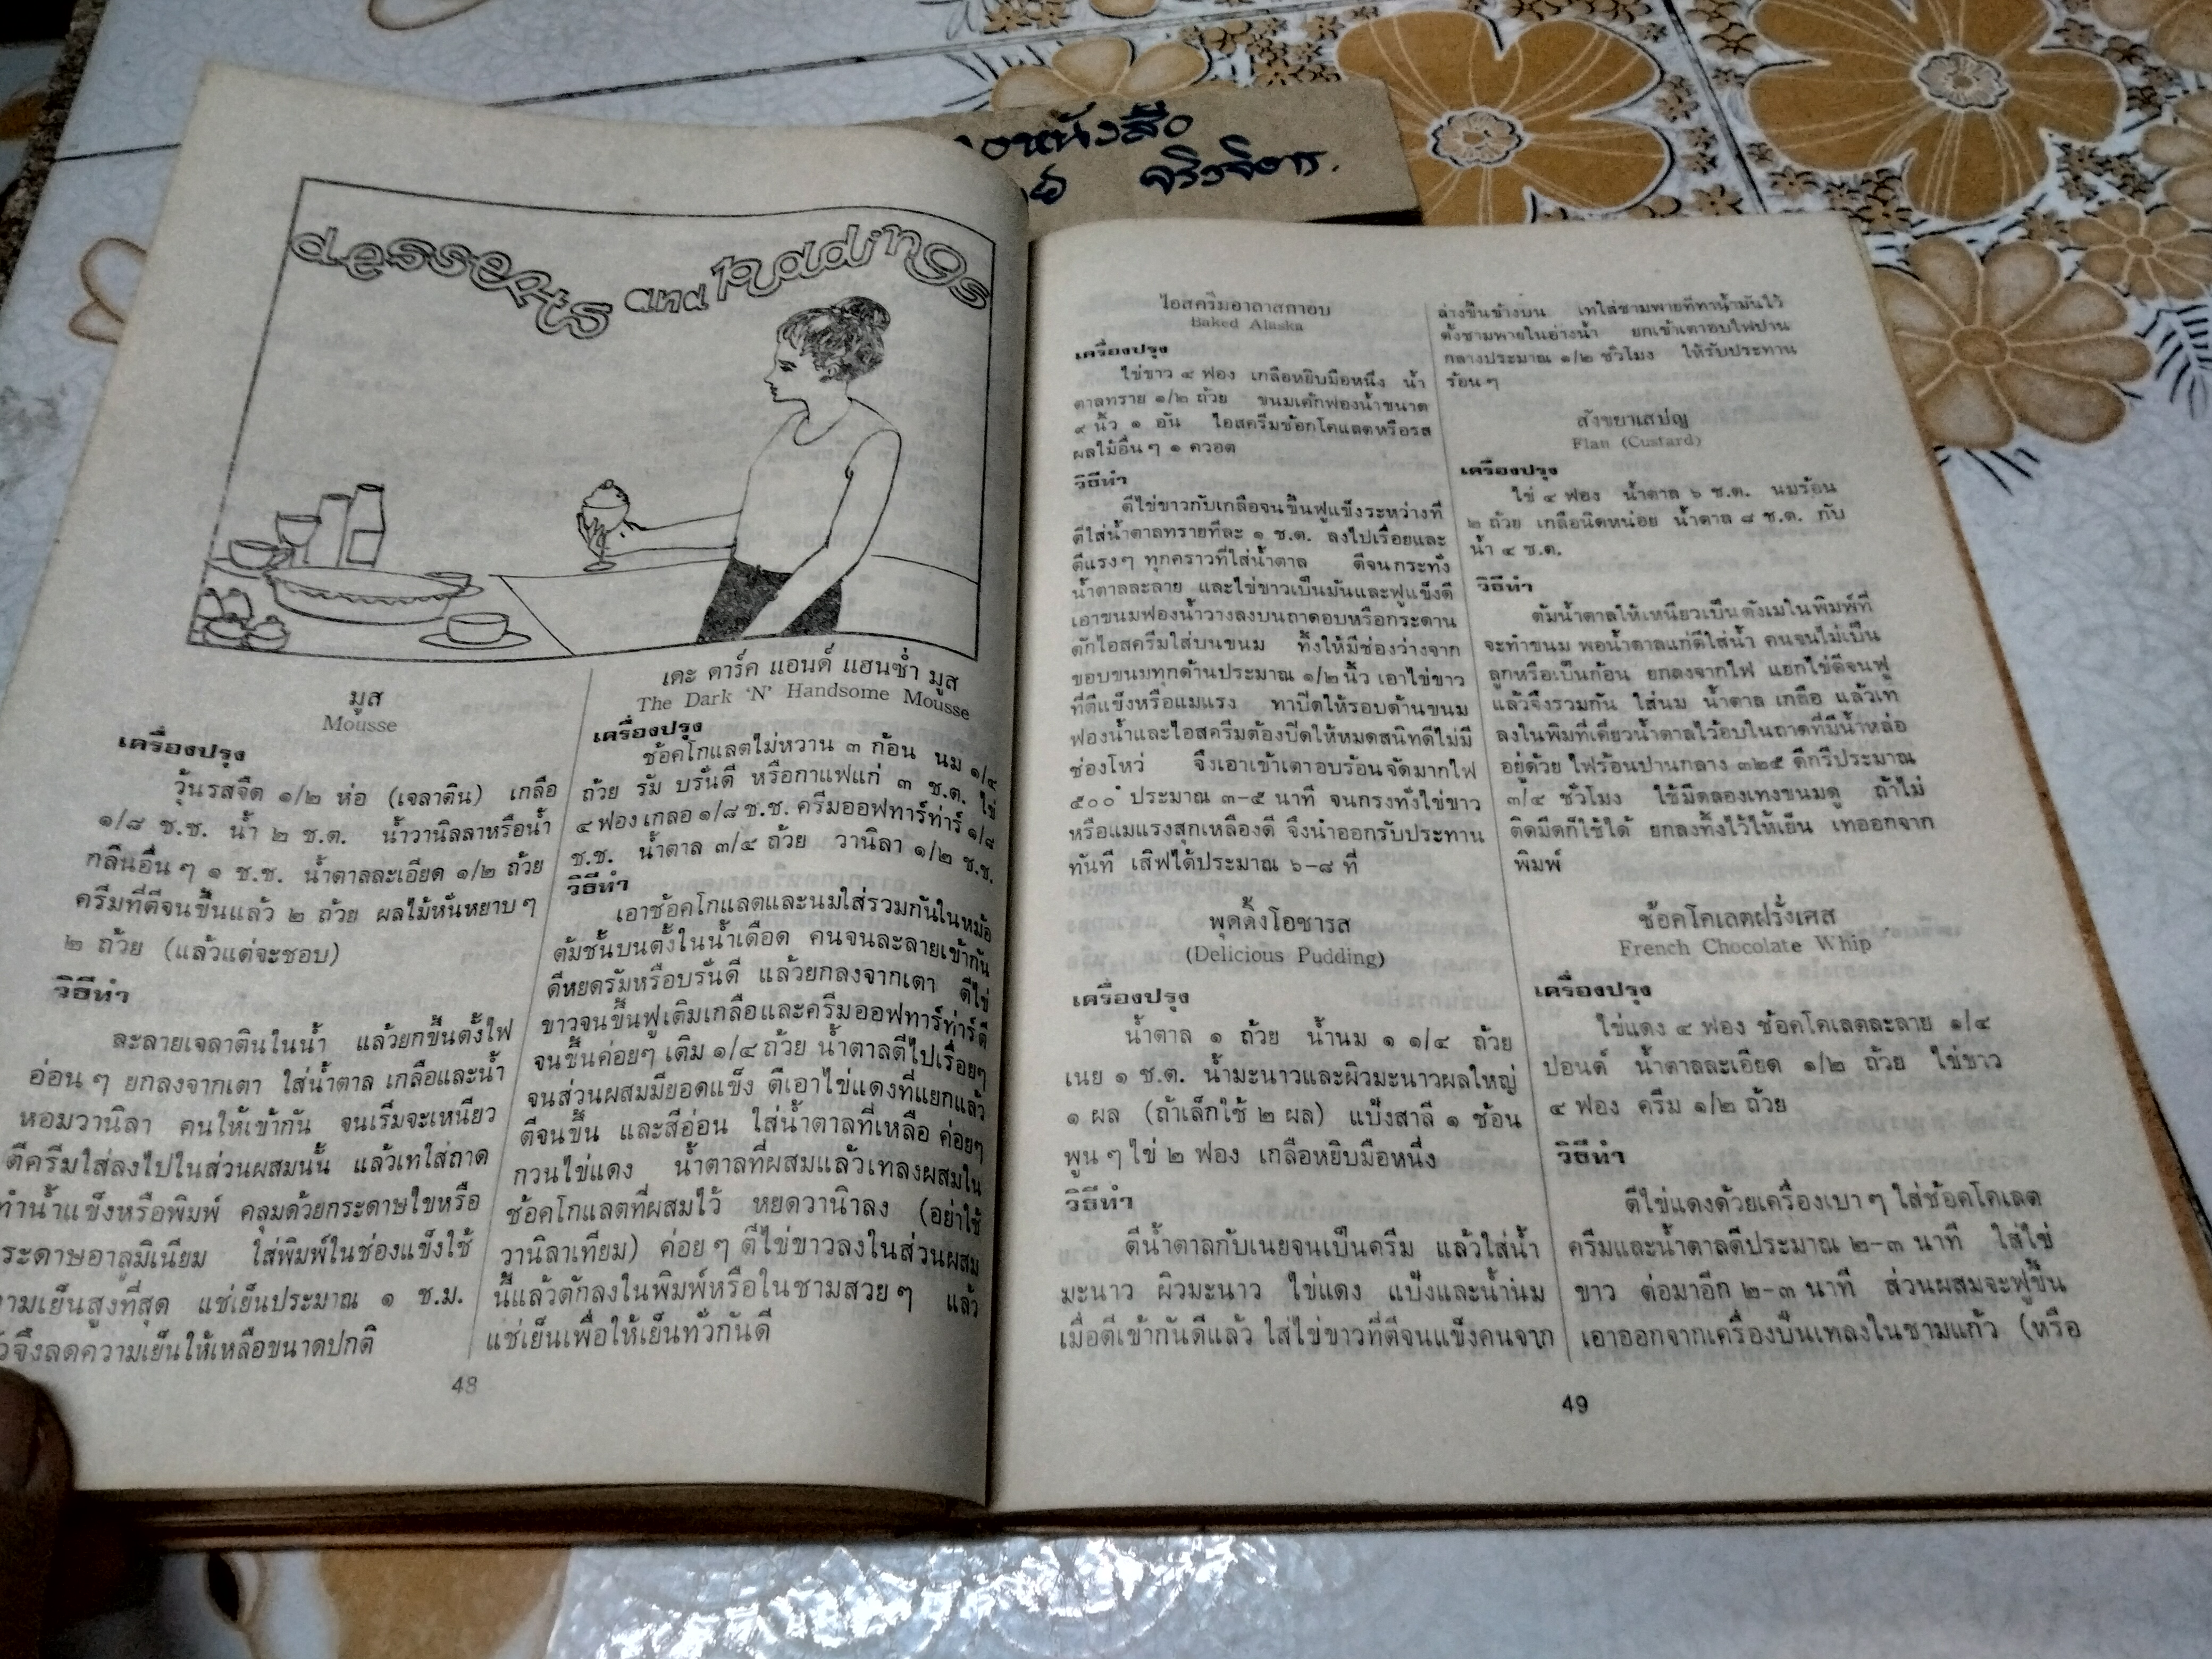 desserts and puddings
มูส
Mousse
เครื่องปรุง
วุ้นรสจืด ๑/๒ ห่อ (เจลาติน) เกลือ
๑/๘ ช.ช. น้ำ ๒ ช.ต. น้ำวานิลลาหรือน้ำ
กลิ่นอื่น ๆ ๑ ช.ช. น้ำตาลละเอียด ๑/๒ ถ้วย
ครีมที่ตีจนขึ้นแล้ว ๒ ถ้วย ผลไม้หั่นหยาบ ๆ
๒ ถ้วย (แล้วแต่จะชอบ)
วิธีทำ
ละลายเจลาตินในน้ำ แล้วยกขึ้นตั้งไฟ
อ่อน ๆ ยกลงจากเตา ใส่น้ำตาล เกลือและน้ำ
หอมวานิลา คนให้เข้ากัน จนเริ่มจะเหนียว
ตีครีมใส่ลงไปในส่วนผสมนั้น แล้วเทใส่ถาด
ทำน้ำแข็งหรือพิมพ์ คลุมด้วยกระดาษไขหรือ
ระดาษอาลูมิเนียม ใส่พิมพ์ในช่องแข็งใช้
ามเย็นสูงที่สุด แช่เย็นประมาณ ๑ ช.ม.
จึงลดความเย็นให้เหลือขนาดปกติ
48
เดะ ดาร์ค แอนด์ แฮนซ่ำ มูส
The Dark 'N' Handsome Mousse
เครื่องปรุง
ช้อคโกแลตไม่หวาน ๓ ก้อน นม ๑/๔
ถ้วย รัม บรั่นดี หรือกาแฟแก่ ๓ ช.ต. ไข่
๔ ฟอง เกลอ ๑/๘ ช.ช. ครีมออฟทาร์ท่าร์ ๑/๘
ช.ช. น้ำตาล ๓/๔ ถ้วย วานิลา ๑/๒ ช.ช.
วิธีทำ
เอาช้อคโกแลตและนมใส่รวมกันในหม้อ
ต้มชั้นบนตั้งในน้ำเดือด คนจนละลายเข้ากัน
ดีหยดรัมหรือบรั่นดี แล้วยกลงจากเตา ตีไข่
ขาวจนขึ้นฟูเติมเกลือและครีมออฟทาร์ท่าร์ตี
จนขึ้นค่อยๆ เติม ๑/๔ ถ้วย น้ำตาลตีไปเรื่อยๆ
จนส่วนผสมมียอดแข็ง ตีเอาไข่แดงที่แยกแล้ว
ตีจนขึ้น และสีอ่อน ใส่น้ำตาลที่เหลือ ค่อยๆ
กวนไข่แดง น้ำตาลที่ผสมแล้วเทลงผสมใน
ช้อคโกแลตที่ผสมไว้ หยดวานิาลง (อย่าใช้
วานิลาเทียม) ค่อย ๆ ตีไข่ขาวลงในส่วนผสม
นี้แล้วตักลงในพิมพ์หรือในชามสวย ๆ แล้ว
แช่เย็นเพื่อให้เย็นทั่วกันดี
ไอสครีมอาลาสกาอบ
Baked Alaska
เครื่องปรุง
ไข่ขาว ๔ ฟอง เกลือหยิบมือหนึ่ง น้ำ
ตาลทราย ๑/๒ ถ้วย ขนมเค้กฟองน้ำขนาด
๙ นิ้ว ๑ อัน ไอสครีมช้อกโคแลตหรือรส
ผลไม้อื่น ๆ ๑ ควอต
วิธีทำ
ตีไข่ขาวกับเกลือจนขึ้นฟูแข็งระหว่างที่
ตีใส่น้ำตาลทรายทีละ ๑ ช.ต. ลงไปเรื่อยและ
ตีแรงๆ ทุกคราวที่ใส่น้ำตาล ตีจนกระทั่ง
น้ำตาลละลาย และไข่ขาวเป็นมันและฟูแข็งดี
เอาขนมฟองน้ำวางลงบนถาดอบหรือกระดาน
ตักไอสครีมใส่บนขนม ทิ้งให้มีช่องว่างจาก
ขอบขนมทุกด้านประมาณ ๑/๒ นิ้ว เอาไข่ขาว
ที่ตีแข็งหรือแมแรง ทาปิดให้รอบด้านขนม
ฟองน้ำและไอสครีมต้องปิดให้หมดสนิทดีไม่มี
ช่องโหว่ จึงเอาเข้าเตาอบร้อนจัดมากไฟ
๕๐๐° ประมาณ ๓-๕ นาที จนกรงทั่งไข่ขาว
หรือแมแรงสุกเหลืองดี จึงนำออกรับประทาน
ทันที เสิฟได้ประมาณ ๖-๘ ที่
พุดดิ้งโอชารส
(Delicious Pudding)
เครื่องปรุง
น้ำตาล ๑ ถ้วย น้ำนม ๑ ๑/๔ ถ้วย
เนย ๑ ช.ต. น้ำมะนาวและผิวมะนาวผลใหญ่
๑ ผล (ถ้าเล็กใช้ ๒ ผล) แป้งสาลี ๑ ช้อน
พูน ๆ ไข่ ๒ ฟอง เกลือหยิบมือหนึ่ง
วิธีทำ
ตีน้ำตาลกับเนยจนเป็นครีม แล้วใส่น้ำ
มะนาว ผิวมะนาว ไข่แดง แป้งและน้ำนม
เมื่อตีเข้ากันดีแล้ว ใส่ไข่ขาวที่ตีจนแข็งคนจาก
ล่างขึ้นข้างบน เทใส่ชามพายที่ทาน้ำมันไว้
ตั้งชามพายในอ่างน้ำ ยกเข้าเตาอบไฟปาน
กลางประมาณ ๑/๒ ชั่วโมง ให้รับประทาน
ร้อนๆ
สังขยาเสปญ
Flan (Custard)
เครื่องปรุง
ไข่ ๔ ฟอง น้ำตาล ๖ ช.ต. นมร้อน
๒ ถ้วย เกลือนิดหน่อย น้ำตาล ๘ ช.ต. กับ
น้ำ ๔ ช.ต.
วิธีทำ
ต้มน้ำตาลให้เหนียวเป็นตังเมในพิมพ์ที่
จะทำขนม พอน้ำตาลแก่ดีใส่น้ำ คนจนไม่เป็น
ลูกหรือเป็นก้อน ยกลงจากไฟ แยกไข่ตีจนฟู
แล้วจึงรวมกัน ใส่นม น้ำตาล เกลือ แล้วเท
ลงในพิมที่เคี่ยวน้ำตาลไว้อบในถาดที่มีน้ำหล่อ
อยู่ด้วย ไฟร้อนปานกลาง ๓๒๕ ดีกรีประมาณ
๓/๔ ชั่วโมง ใช้มีดลองเทงขนมดู ถ้าไม่
ติดมีดก็ใช้ได้ ยกลงทิ้งไว้ให้เย็น เทออกจาก
พิมพ์
ช้อคโคเลตฝรั่งเศส
French Chocolate Whip
เครื่องปรุง
ไข่แดง ๔ ฟอง ช้อคโคเลตละลาย ๑/๔
ปอนด์ น้ำตาลละเอียด ๑/๒ ถ้วย ไข่ขาว
๔ ฟอง ครีม ๑/๒ ถ้วย
วิธีทำ
ตีไข่แดงด้วยเครื่องเบา ๆ ใส่ช้อคโคเลต
ครีมและน้ำตาลตีประมาณ ๒-๓ นาที ใส่ไข่
ขาว ต่อมาอีก ๒-๓ นาที ส่วนผสมจะฟูขึ้น
เอาออกจากเครื่องปั่นเทลงในชามแก้ว (หรือ
49